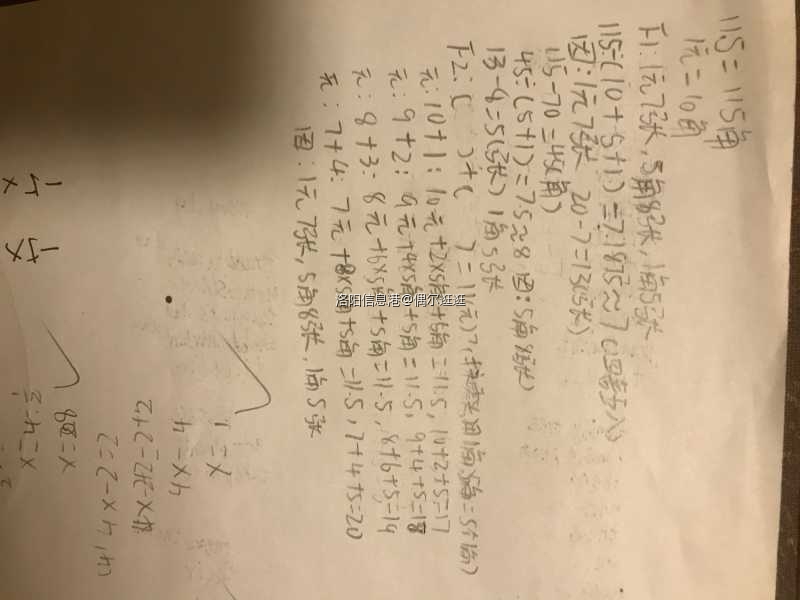 115=115角
1元=10角
T1:1元7张,5角8张,1角5张
115÷(10+5+1)=7.1875≈7(四舍五入)
因:1元7张 20-7=13(张)
115-70=45(角)
45÷(5+1)=7.5≈8 因:5角8张
13-8=5(张) 1角5张
T2:( )+( )=11(元)
元:10+1:10元+2×5角+5角=11.5,10+2+5=17
元:9+2:9元+4×5角+5角=11.5,9+4+5=18
元:8+3:8元+6×5角+5角=11.5,8+6+5=19
元:7+4:7元+8×5角+5角=11.5,7+4+5=20
因:1元7张,5角8张,1角5张
洛阳信息港@偶尔逛逛
(4) 4x-2=2
4x-2+2=2+2
4x=4
x=1